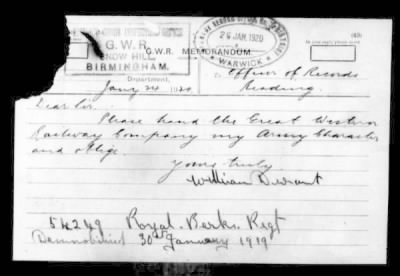 G.W.R.
SNOW HILL,
BIRMINGHAM.
G.W.R. MEMORANDUM.
Department,
26 JAN. 1920
WARWICK
Officer of Records
Reading.
Jany 24 1920
Dear Sir.
Please hand the Great Western
Railway Company my Army Character
and oblige
Yours truly
William Durant
54249 Royal. Berks. Regt
30th January 1919